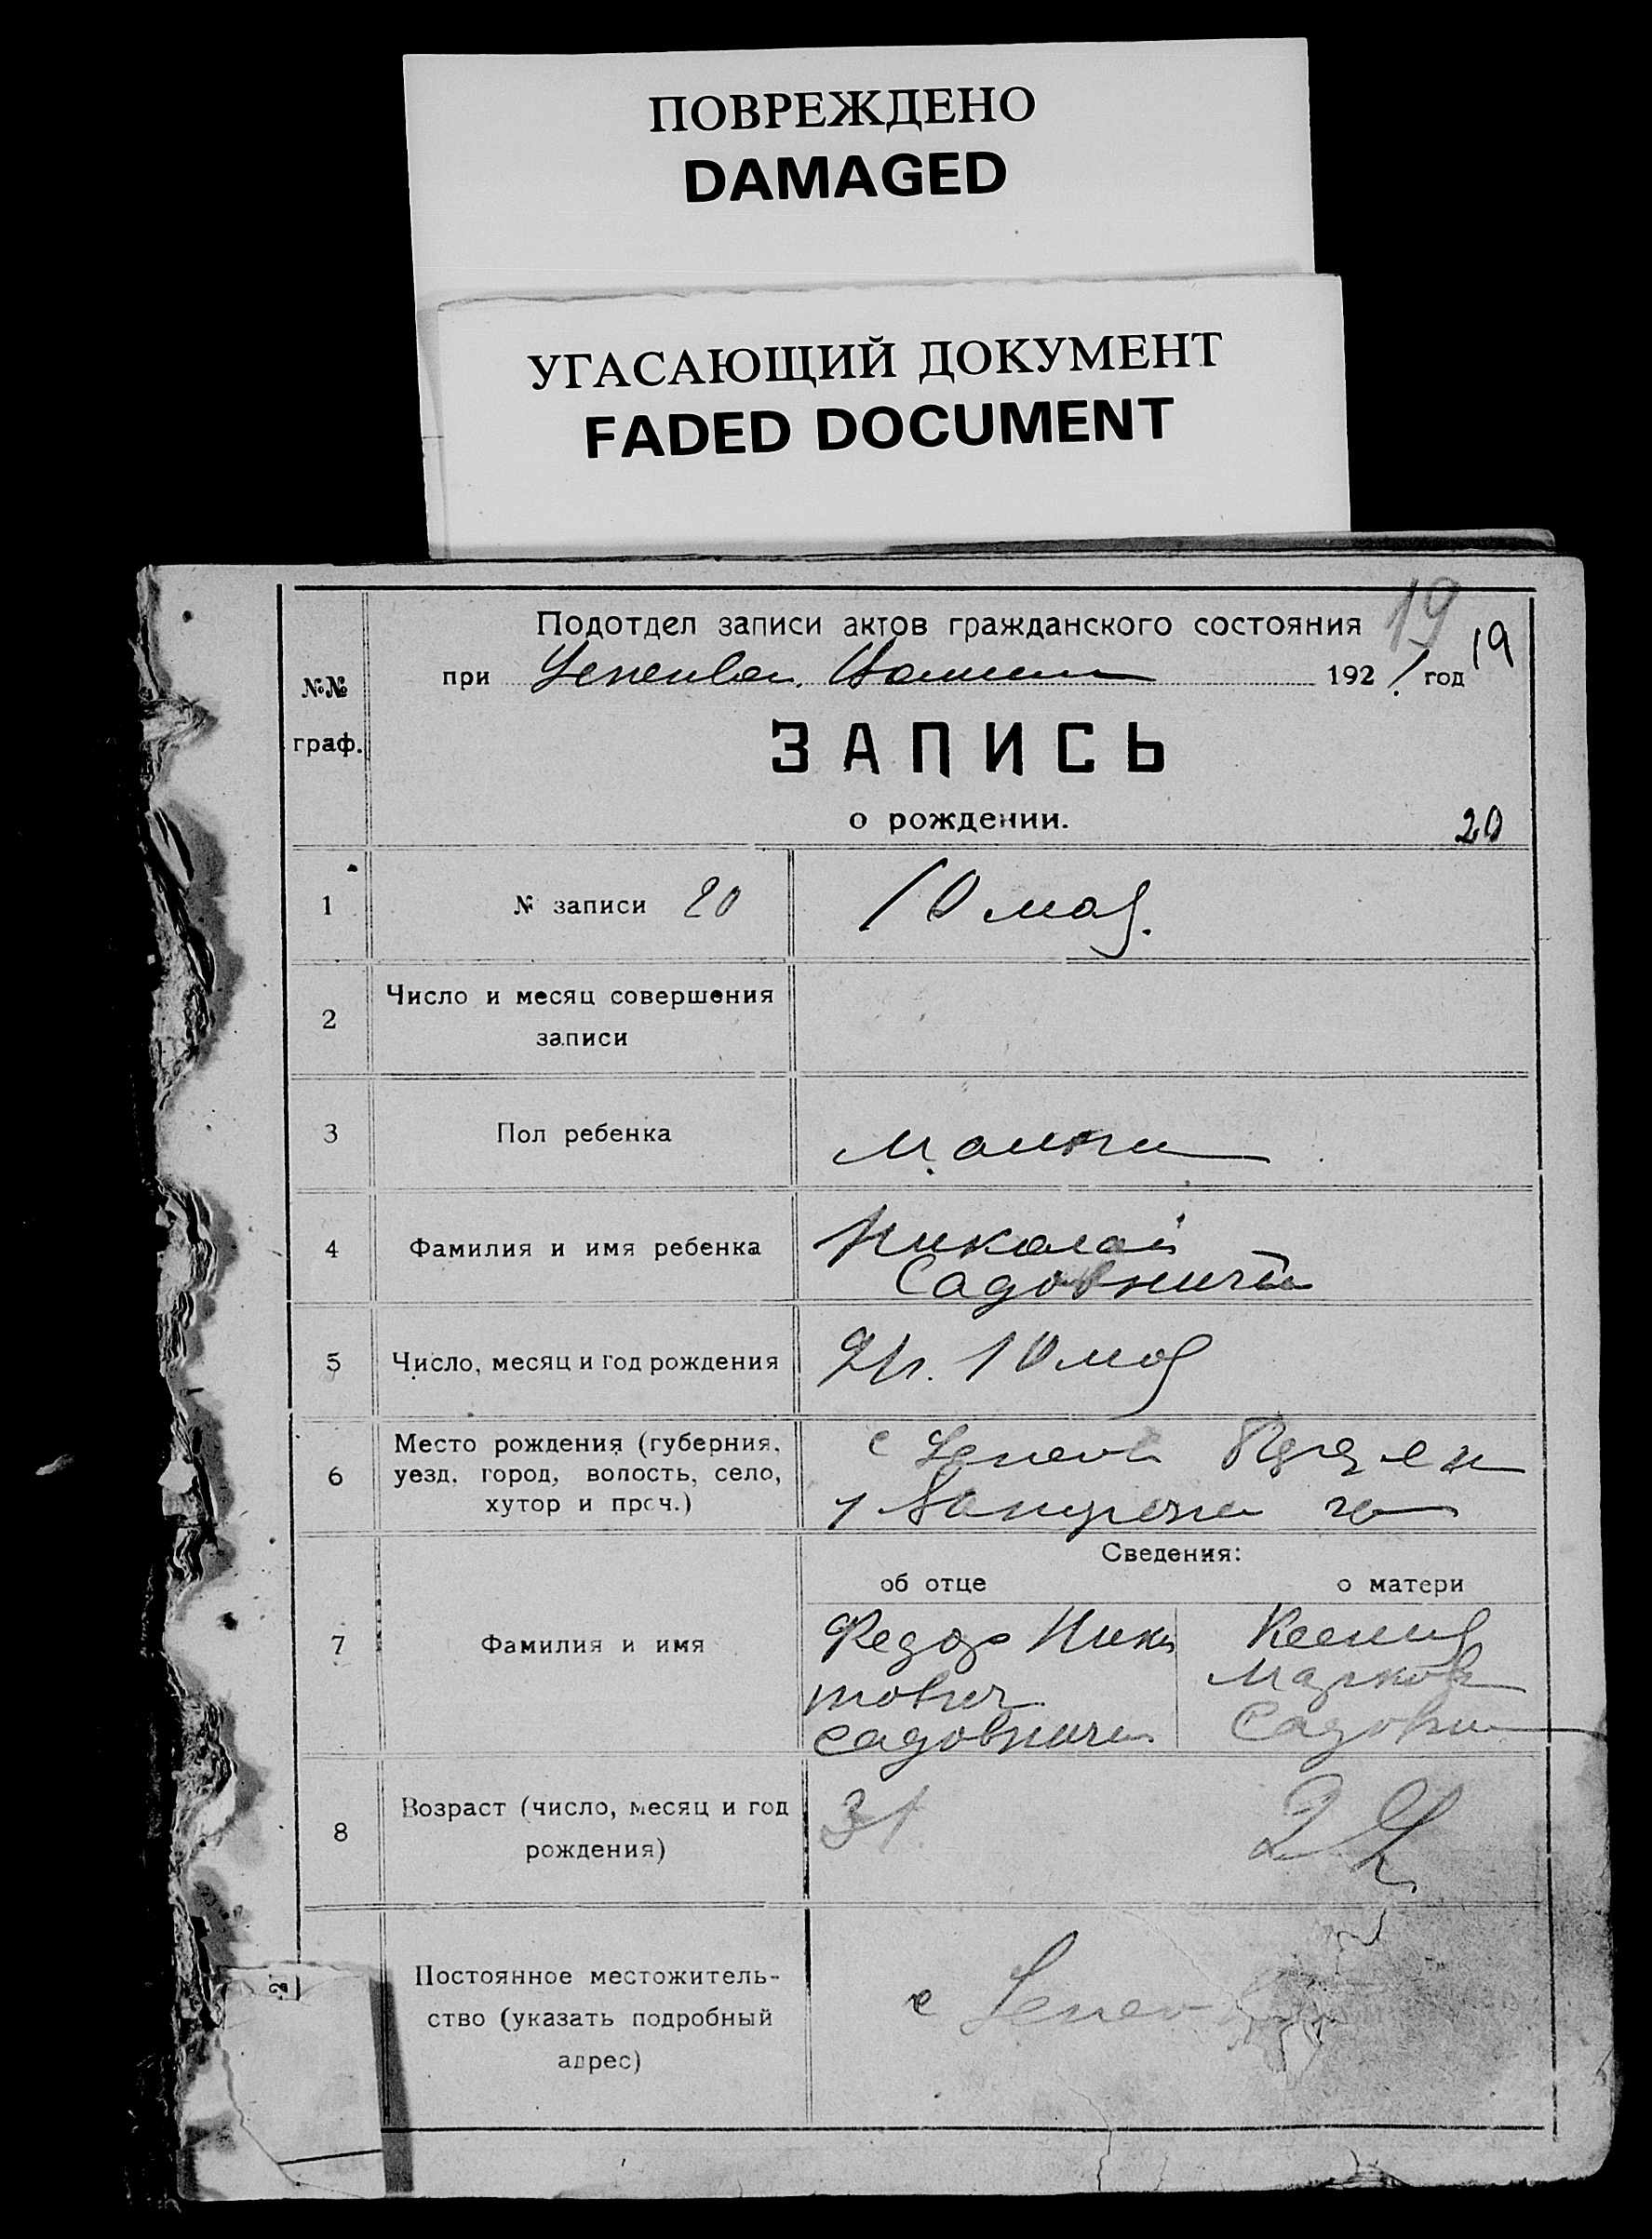 ПОВРЕЖДЕНО
DAMAGED
УГАСАЮЩИЙ ДОКУМЕНТ
FADED DOCUMENT
19
Подотдел записи актов гражданского состояния
19
при 1921 год
№№
граф.
ЗАПИСЬ
о рождении.
20
1 № записи 20 10 мая.
2 Число и месяц совершения
записи
3 Пол ребенка
4 Фамилия и имя ребенка Николай
Садовничий
5 Число, месяц и год рождения 21г. 10 мая
6 Место рождения (губерния,
уезд, город, волость, село,
хутор и проч.)
с
Сведения:
об отце о матери
7 Фамилия и имя
Федор Ники Ксения
тович Марков
Садовничий Садовни
8 Возраст (число, месяц и год
рождения)
31
Постоянное местожитель-
ство (указать подробный
адрес)
с
2